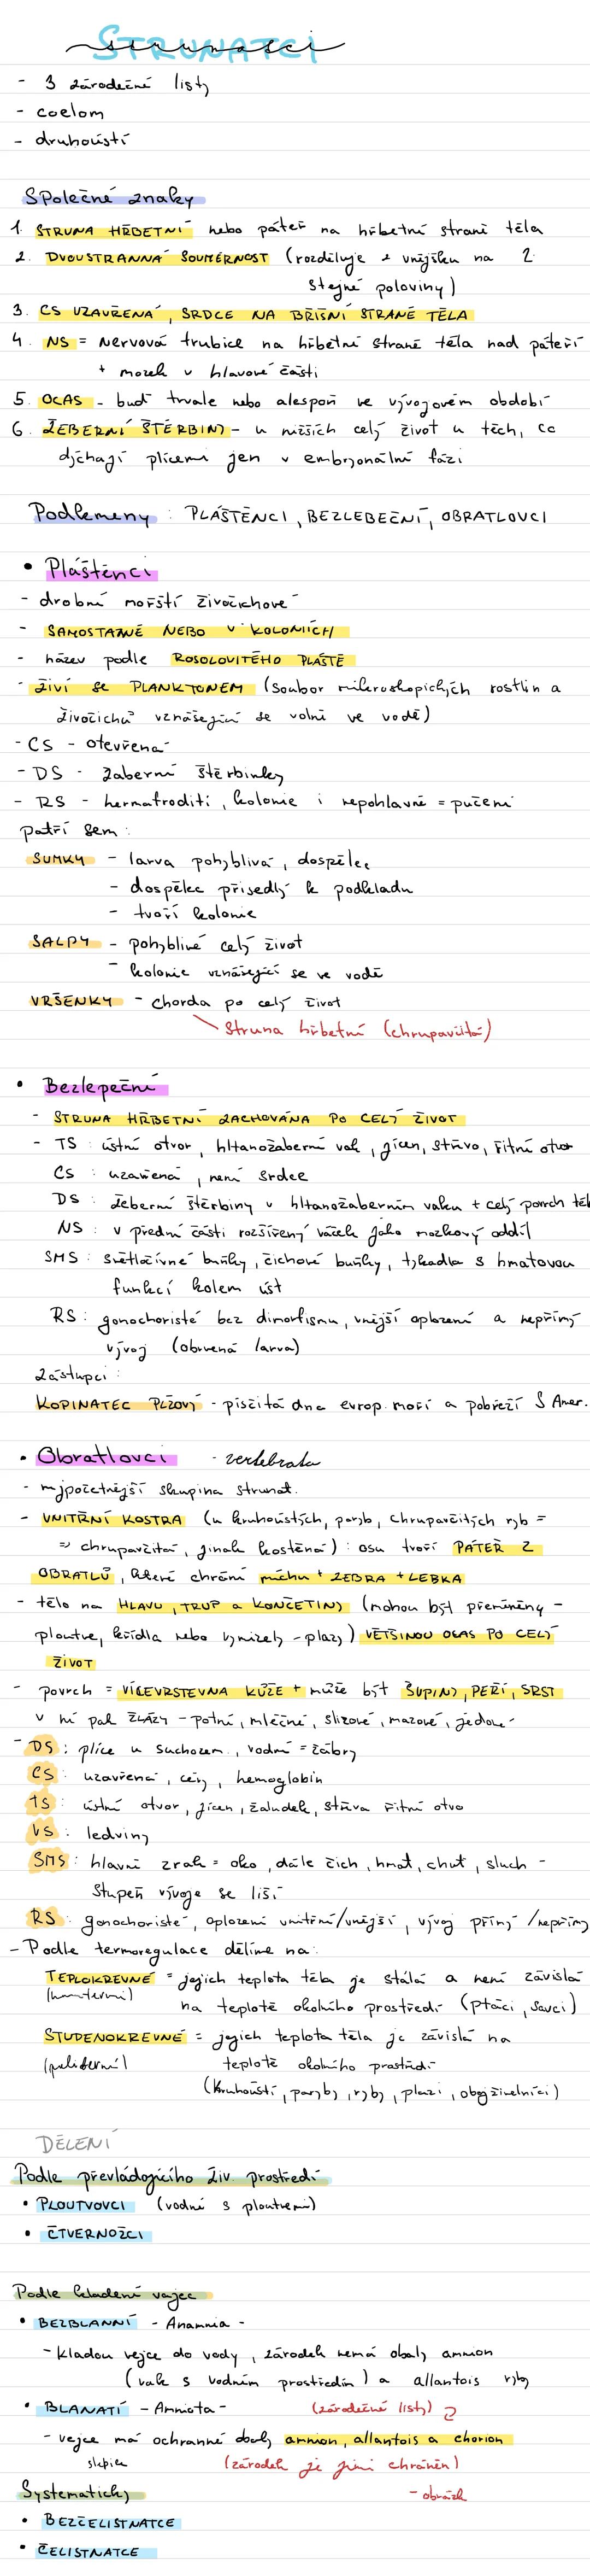 STRUNATCI
strunatci
- 3 zárodečné listy
- coelom
- druhoústí
Společné znaky
1. STRUNA HŘBETNÍ nebo páteř na hřbetní straně těla
2. DVOUSTRANNÁ SOUMĚRNOST (rozděluje z vnějšku na 2
stejné poloviny)
3. CS UZAVŘENÁ, SRDCE NA BŘIŠNÍ STRANĚ TĚLA
4. NS = nervová trubice na hřbetní straně těla nad páteří
+ mozek v hlavové části
5. OCAS - buď trvale nebo alespoň ve vývojovém období
6. ŽEBERNÍ ŠTĚRBINY - u nižších celý život u těch, co
dýchají plícemi jen v embryonální fázi
Podkmeny : PLÁŠTĚNCI, BEZLEBEČNÍ, OBRATLOVCI
• Pláštěnci
- drobní mořští živočichové
- SAMOSTATNĚ NEBO V KOLONIÍCH
- název podle ROSOLOVITÉHO PLÁŠTĚ
- živí se PLANKTONEM (soubor mikroskopických rostlin a
živočichů vznášející se volně ve vodě)
- CS - otevřená
- DS - žaberní štěrbinky
- RS - hermafroditi, kolonie i nepohlavně = pučení
patří sem :
SUMKY - larva pohyblivá, dospělec
- dospělec přisedlý k podkladu
- tvoří kolonie
SALPY - pohyblivé celý život
- kolonie vznášející se ve vodě
VRŠENKY - chorda po celý život
struna hřbetní (chrupavčitá)
• Bezlepeční
- STRUNA HŘBETNÍ ZACHOVÁNA PO CELÝ ŽIVOT
- TS : ústní otvor, hltanožaberní vak, jícen, střevo, řitní otvor
CS : uzavřená, není srdce
DS : žeberní štěrbiny v hltanožaberním vaku + celý povrch těl
NS : v přední části rozšířený váček jako mozkový oddíl
SMS : světločivné buňky, čichové buňky, tykadla s hmatovou
funkcí kolem úst
RS : gonochoristé bez dimorfismu, vnější oplození a nepřímý
vývoj (obrvená larva)
zástupci :
KOPINATEC PLŽOVÝ - písčitá dna evrop. moří a pobřeží S Amer.
• Obratlovci - vertebrata
- nejpočetnější skupina strunat.
- VNITŘNÍ KOSTRA (u kruhoústých, paryb, chrupavčitých ryb =
=> chrupavčitá, jinak kostěná) : osu tvoří PÁTEŘ Z
OBRATLŮ, které chrání míchu + ŽEBRA + LEBKA
- tělo na HLAVU, TRUP a KONČETINY (mohou být přeměněny -
ploutve, křídla nebo vymizely - plazy) VĚTŠINOU OCAS PO CELÝ
ŽIVOT
- povrch = VÍCEVRSTEVNÁ KŮŽE + může být ŠUPINY, PEŘÍ, SRST
v ní pak ŽLÁZY - potní, mléčné, slizové, mazové, jedové
- DS : plíce u suchozem., vodní = žábry
CS : uzavřená, cévy, hemoglobin
TS : ústní otvor, jícen, žaludek, střeva řitní otvo
VS : ledviny
SMS : hlavní zrak = oko, dále čich, hmat, chuť, sluch -
stupeň vývoje se liší
RS : gonochoristé, oplození vnitřní/vnější, vývoj přímý/nepřímý
- Podle termoregulace dělíme na :
TEPLOKREVNÉ = jejich teplota těla je stálá a není závislá
na teplotě okolního prostředí (ptáci, savci)
STUDENOKREVNÉ = jejich teplota těla je závislá na
teplotě okolního prostředí
(kruhoústí, paryby, ryby, plazi, obojživelníci)
DĚLENÍ
Podle převládajícího živ. prostředí
• PLOUTVOVCI (vodní s ploutvemi)
• ČTVERNOŽCI
Podle kladení vajec
• BEZBLANNÍ - Anamnia -
- kladou vejce do vody, zárodek nemá obaly amnion
(vak s vodním prostředím) a allantois ryby
• BLANATÍ - Amniota - (zárodečné listy)
- vejce má ochranné obaly amnion, allantois a chorion
slepice (zárodek je jimi chráněn)
- obrázk
Systematicky
• BEZČELISTNATCE
• ČELISTNATCE